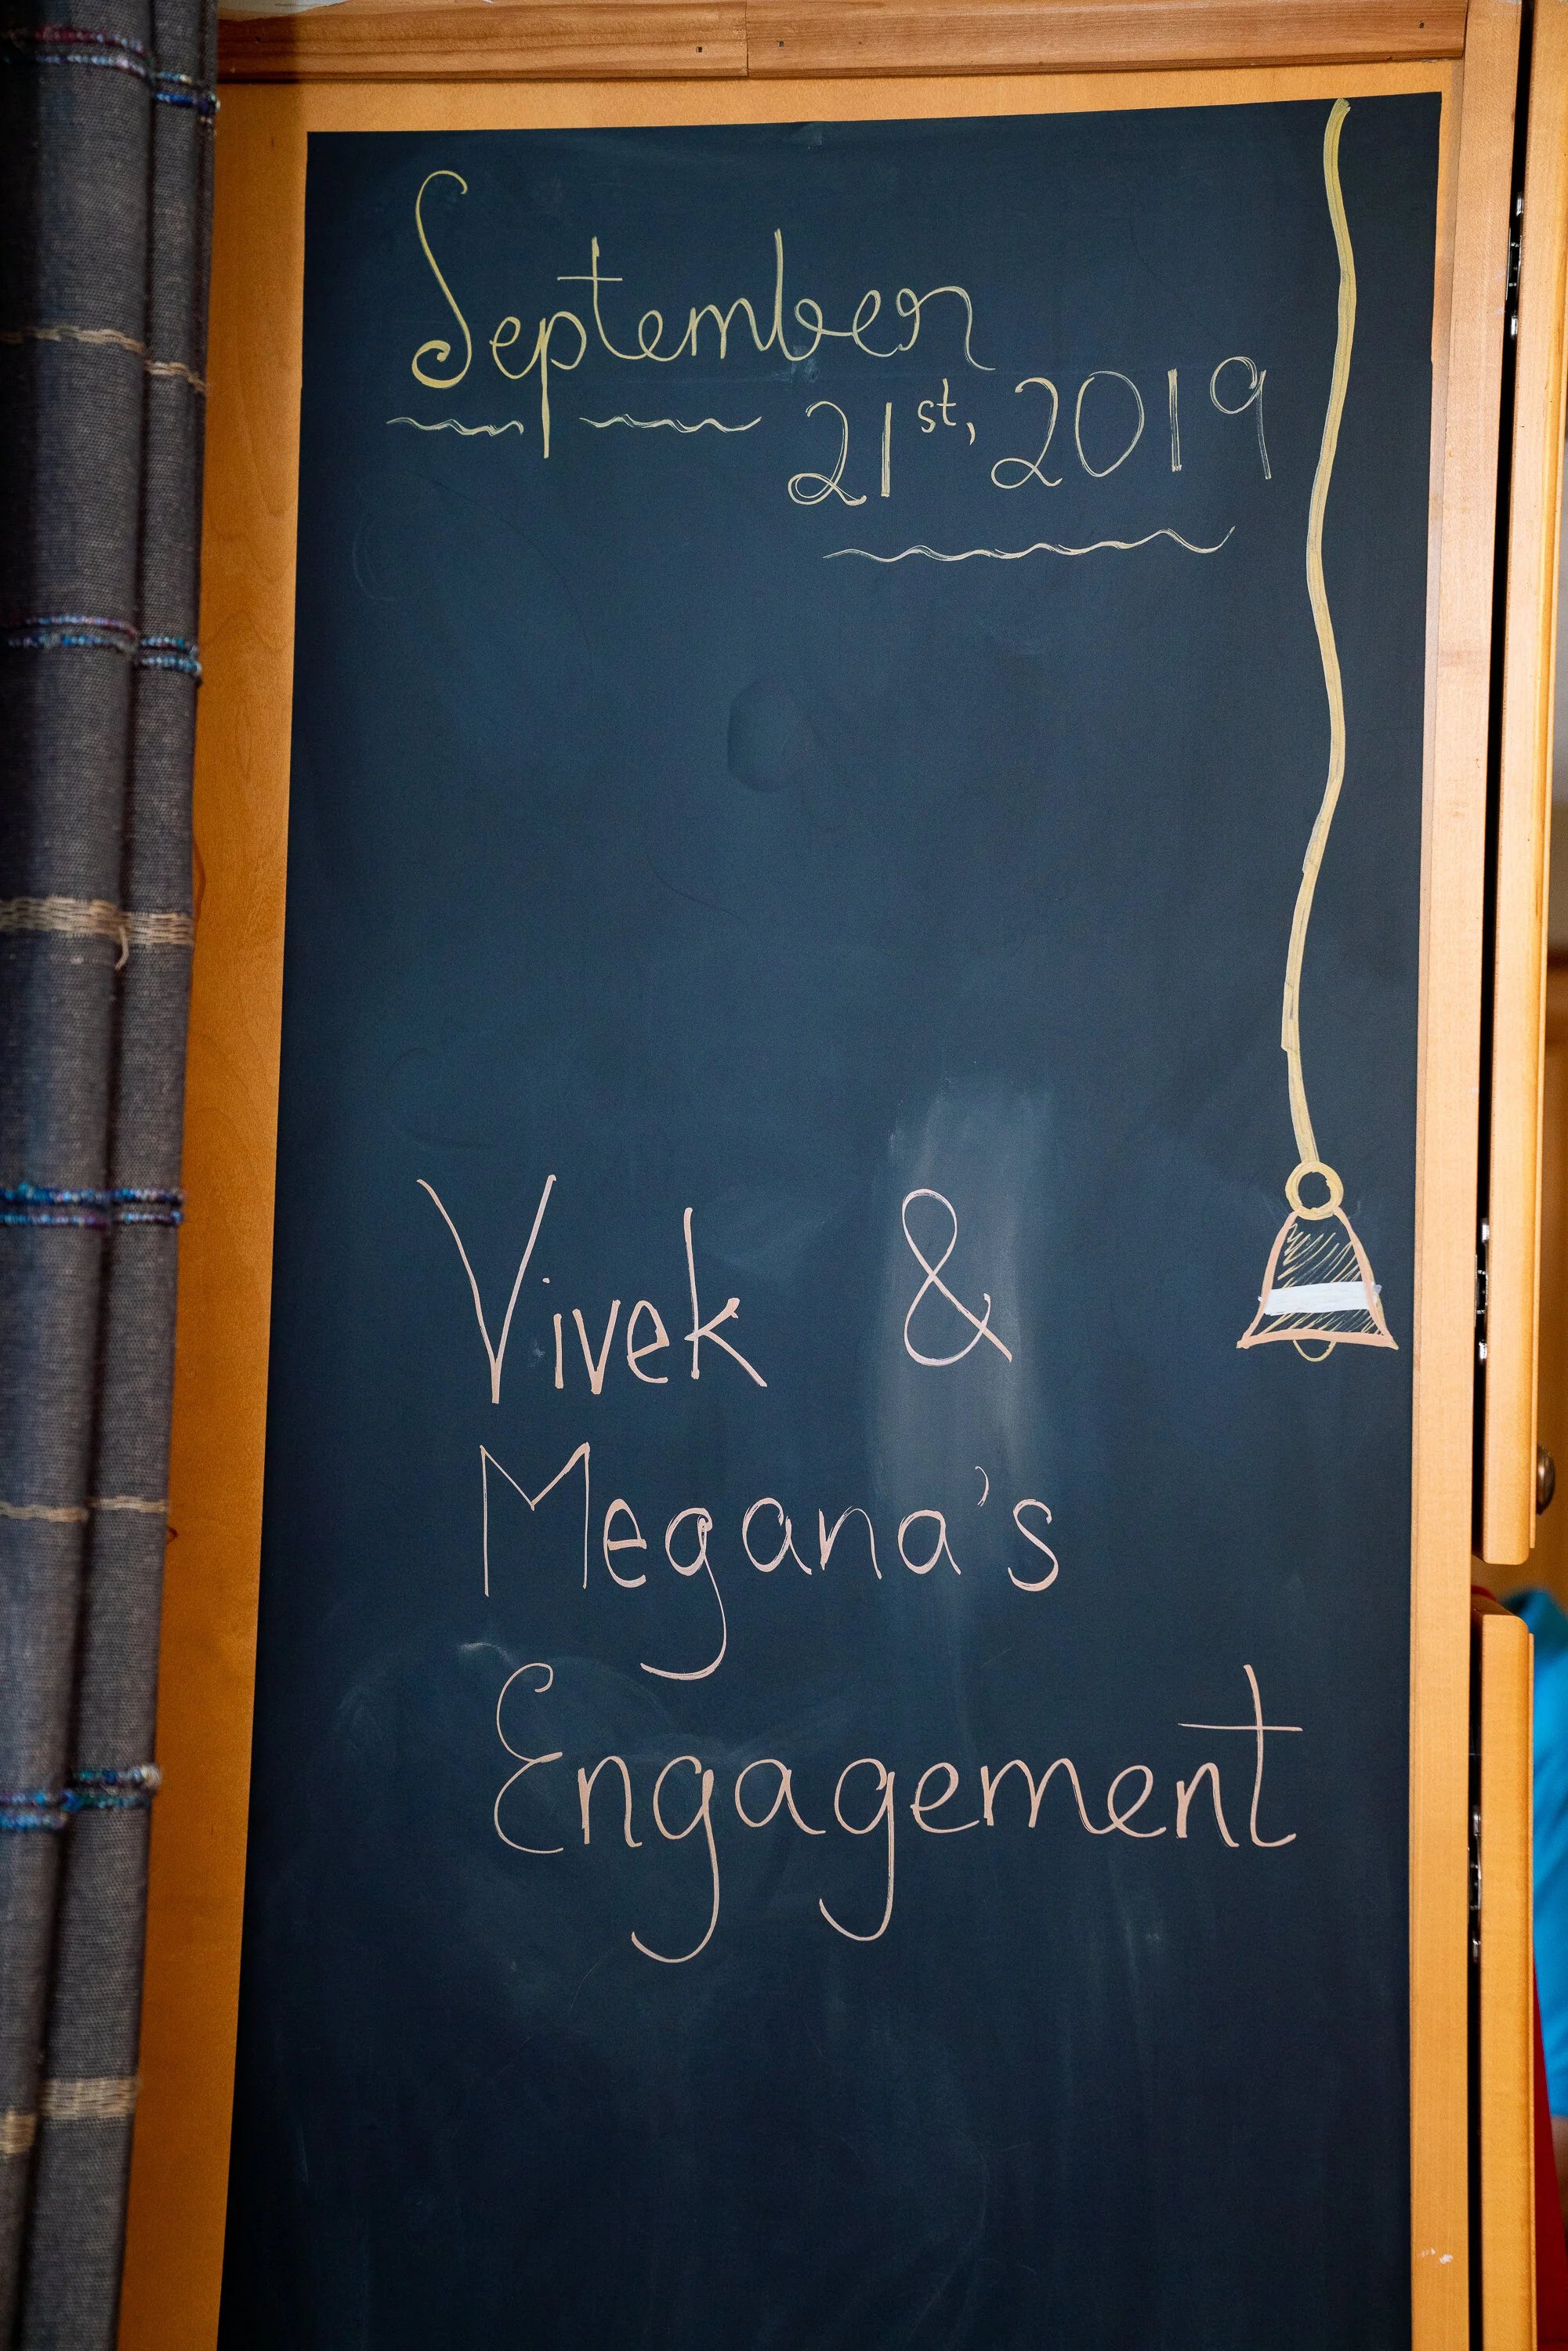 September
21st, 2019
Vivek &
Megana's
Engagement